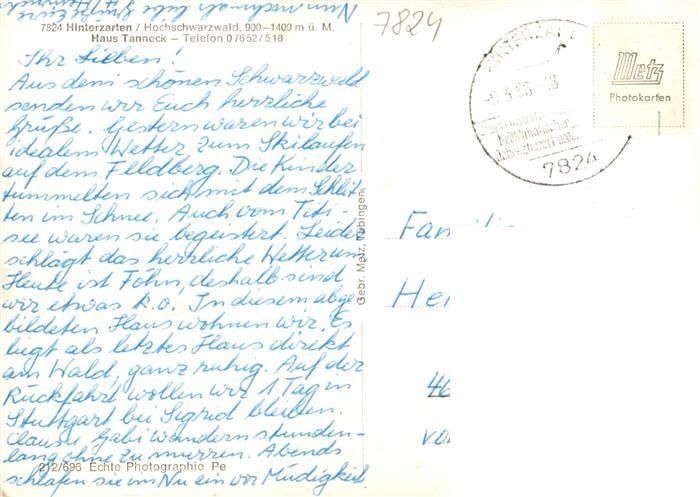 7824 Hinterzarten / Hochschwarzwald, 900–1400 m ü. M.
Haus Tanneck – Telefon 07652/518
Ihr Lieben!
Aus dem schönen Schwarzwald
senden wir Euch herzliche
Grüße. Gestern waren wir bei
idealem Wetter zum Skilaufen
auf dem Feldberg. Die Kinder
tummelten sich mit dem Schlit-
ten im Schnee. Auch vom Titi-
see waren sie begeistert. Leider
schlägt das herrliche Wetter um
Heute ist Föhn, deshalb sind
wir etwas k.o. In diesem abge
bildeten Haus wohnen wir. Es
liegt als letztes Haus direkt
am Wald, ganz ruhig. Auf der
Rückfahrt wollen wir 1 Tag in
Stuttgart bei Sigrid bleiben.
Claus u. Gabi wandern stunden-
lang ohne zu murren. Abends
schlafen sie im Nu ein vor Müdigkeit.
Nun nochmals
212/696 Echte Photographie
Gebr. Metz, Tübingen
7824
HINTERZA
7824
Metz
Photokarten
Fam
He
46